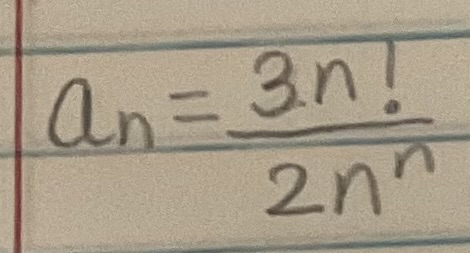 aₙ = 3.n! / 2nⁿ